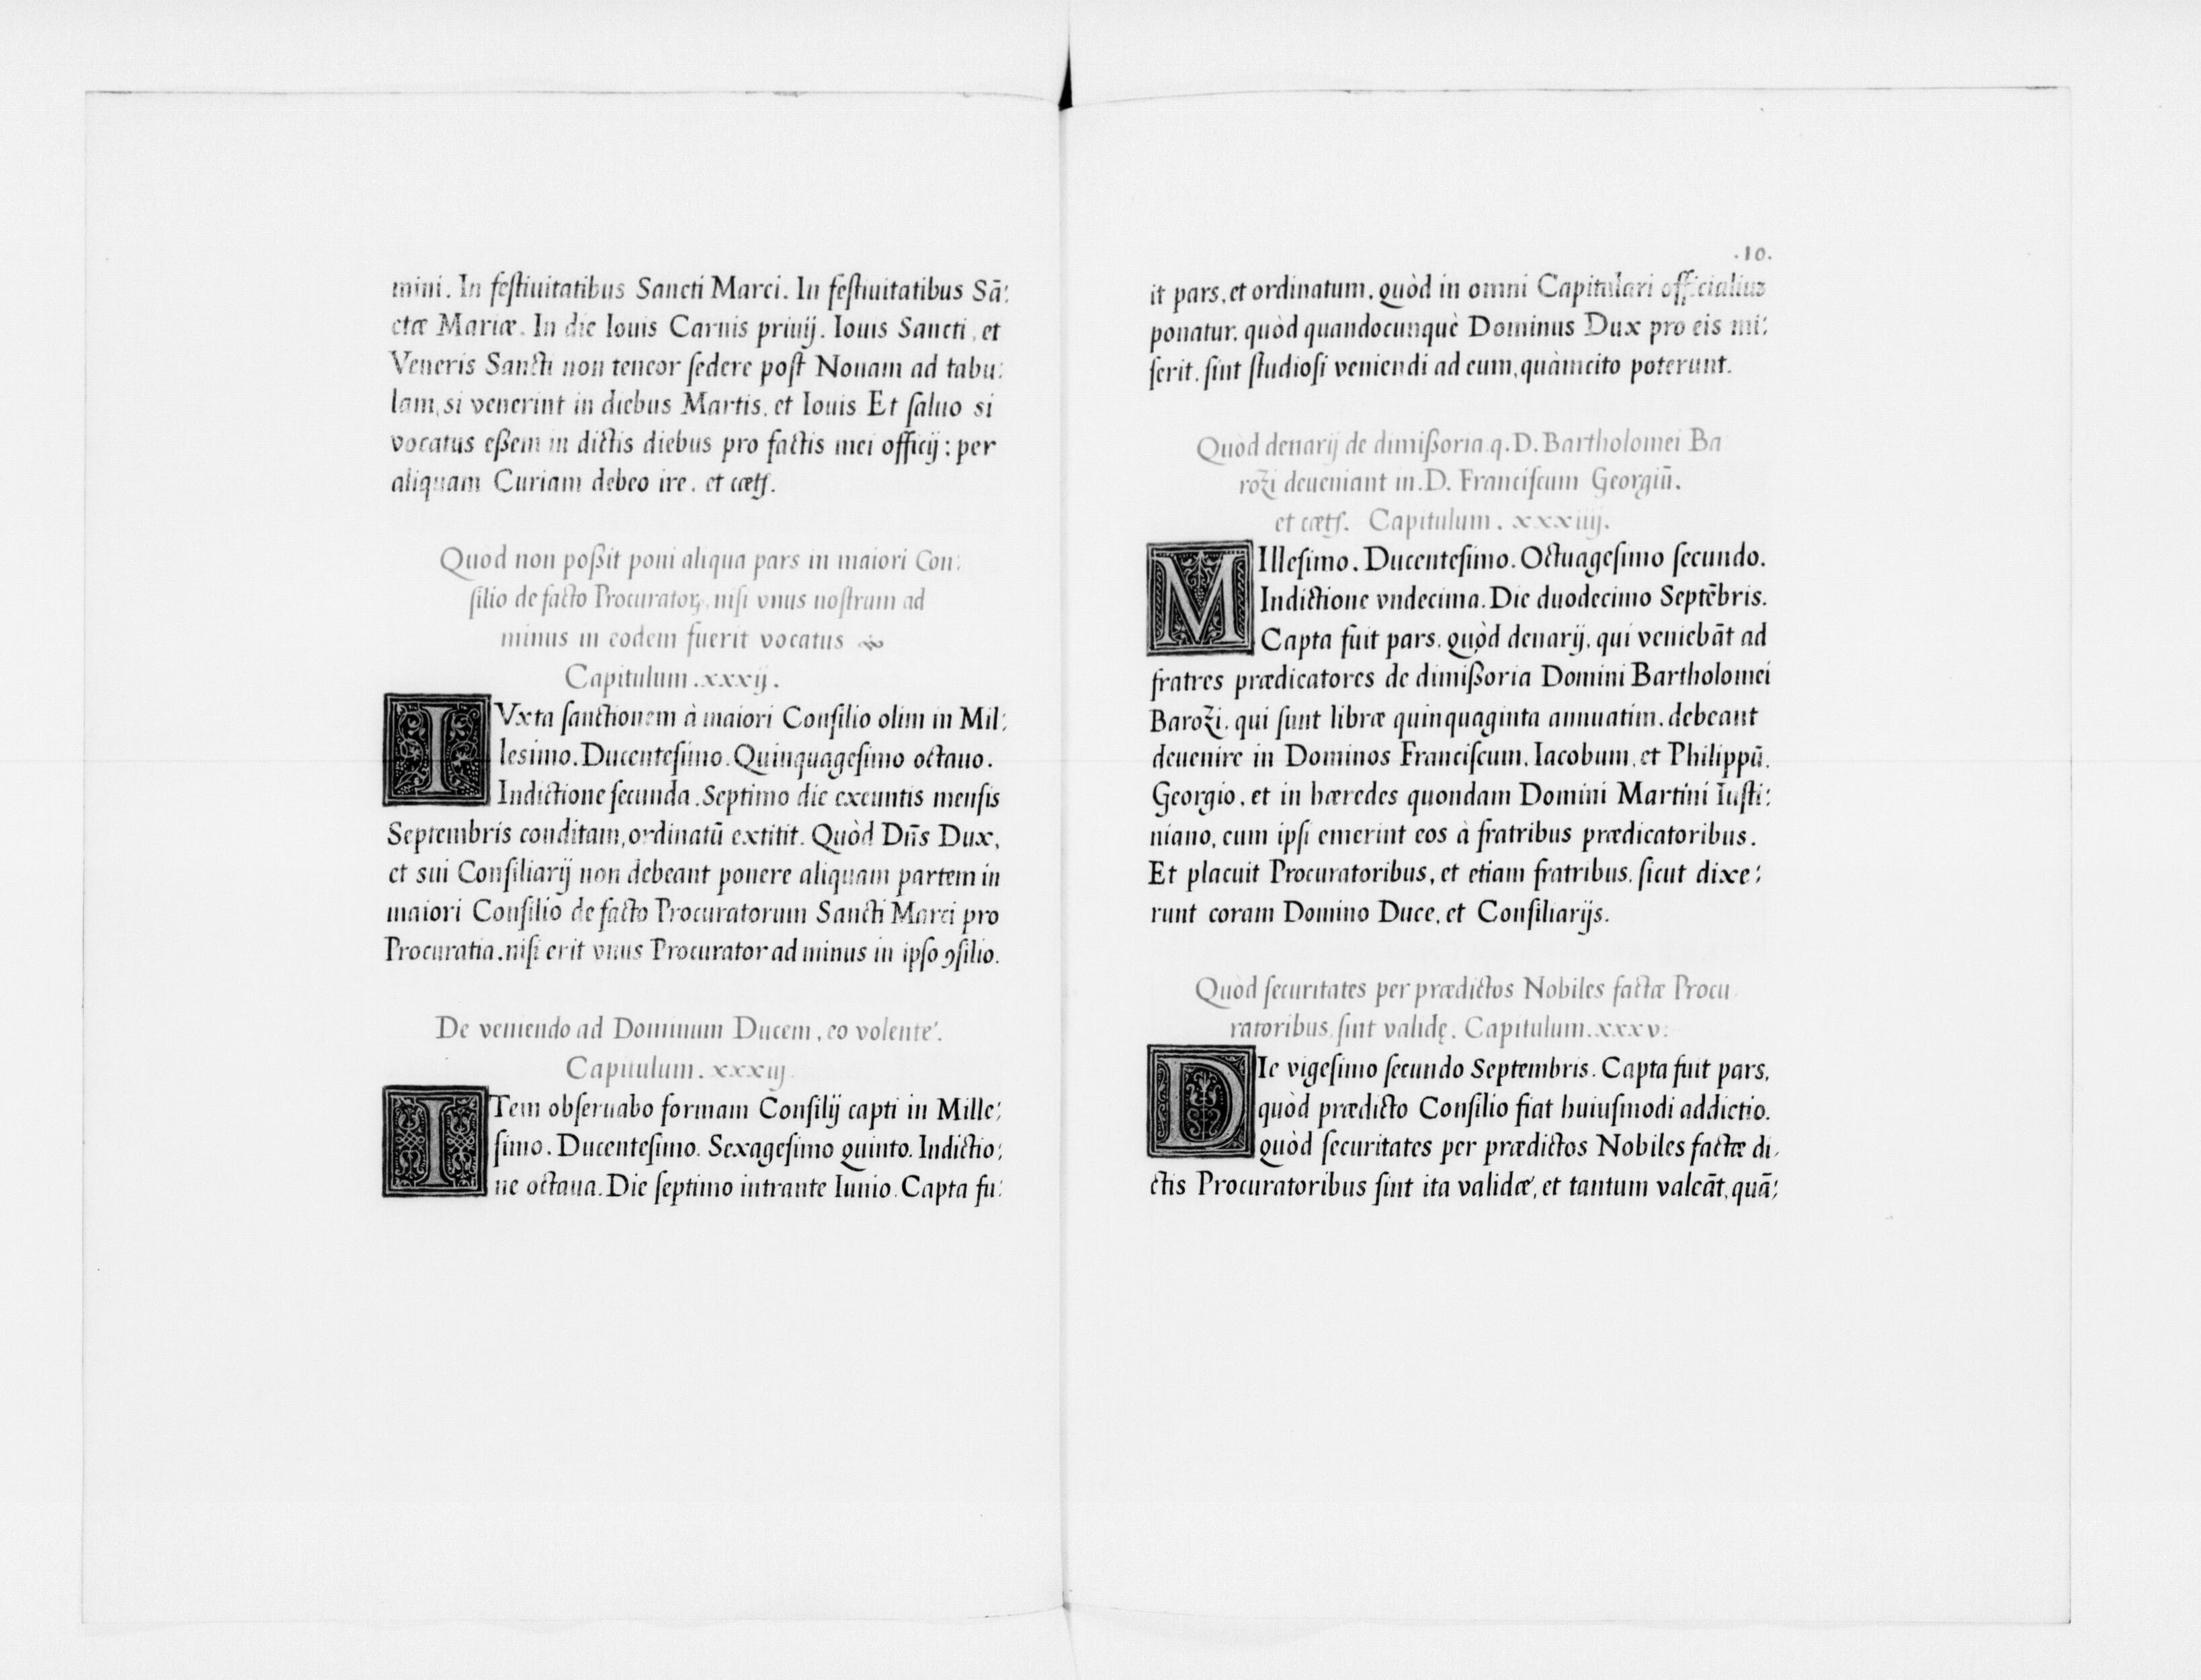 mini. In festiuitatibus Sancti Marci. In festiuitatibus Sā:
ctæ Mariæ. In die Iouis Carnis priuij. Iouis Sancti, et
Veneris Sancti non teneor sedere post Nonam ad tabu:
lam, si venerint in diebus Martis, et Iouis Et saluo si
vocatus eßem in dictis diebus pro factis mei officij: per
aliquam Curiam debeo ire. et cæt.
Quod non poßit poni aliqua pars in maiori Con:
silio de facto Procuratoꝝ, nisi vnus nostrum ad
minus in eodem fuerit vocatus
Capitulum. xxxij.
IVxta sanctionem à maiori Consilio olim in Mil:
lesimo. Ducentesimo. Quinquagesimo octauo.
Indictione secunda. Septimo die exeuntis mensis
Septembris conditam, ordinatū extitit. Quòd Dn̄s Dux,
et sui Consiliarij non debeant ponere aliquam partem in
maiori Consilio de facto Procuratorum Sancti Marci pro
Procuratia. nisi erit vnus Procurator ad minus in ipso ꝯsilio.
De veniendo ad Dominum Ducem, eo volente.
Capitulum. xxxiij.
ITem obseruabo formam Consilij capti in Mille:
simo. Ducentesimo. Sexagesimo quinto. Indictio:
ne octaua. Die septimo intrante Iunio. Capta fu:
.10.
it pars, et ordinatum, quòd in omni Capitulari officialiuꝫ
ponatur, quòd quandocunquè Dominus Dux pro eis mi:
serit, sint studiosi veniendi ad eum, quàmcito poterunt.
Quòd denarij de dimißoria q. D. Bartholomei Ba
rozi deueniant in. D. Franciscum Georgiū.
et cæt. Capitulum. xxxiiij.
MIllesimo. Ducentesimo. Octuagesimo secundo.
Indictione vndecima. Die duodecimo Septēbris.
Capta fuit pars, quòd denarij, qui veniebāt ad
fratres prædicatores de dimißoria Domini Bartholomei
Barozi, qui sunt libræ quinquaginta annuatim, debeant
deuenire in Dominos Franciscum, Iacobum, et Philippū,
Georgio, et in hæredes quondam Domini Martini Iusti:
niano, cum ipsi emerint eos à fratribus prædicatoribus.
Et placuit Procuratoribus, et etiam fratribus, sicut dixe:
runt coram Domino Duce, et Consiliarijs.
Quòd securitates per prædictos Nobiles factæ Procu
ratoribus, sint validę. Capitulum. xxxv.
DIe vigesimo secundo Septembris. Capta fuit pars,
quòd prædicto Consilio fiat huiusmodi addictio.
quòd securitates per prædictos Nobiles factæ di
ctis Procuratoribus sint ita validæ, et tantum valeāt, quā: